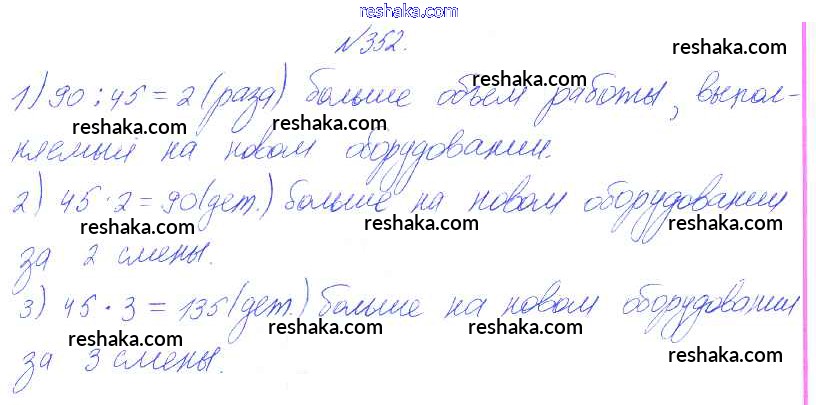 reshaka.com
№352. reshaka.com
1) 90 : 45 = 2 (раза) больше объем работы, выпол-
reshaka.com
reshaka.com reshaka.com reshaka.com
няемый на новом оборудовании.
2) 45 · 2 = 90 (дет.) больше на новом оборудовании
reshaka.com reshaka.com reshaka.com
за 2 смены. reshaka.com
3) 45 · 3 = 135 (дет.) больше на новом оборудовании
reshaka.com reshaka.com
за 3 смены. reshaka.com reshaka.com